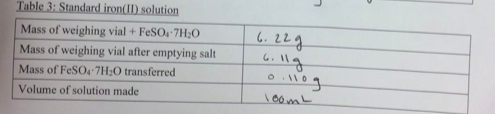 Table 3: Standard iron(II) solution
Mass of weighing vial + FeSO₄·7H₂O 6.22g
Mass of weighing vial after emptying salt 6.11g
Mass of FeSO₄·7H₂O transferred 0.110g
Volume of solution made 100mL